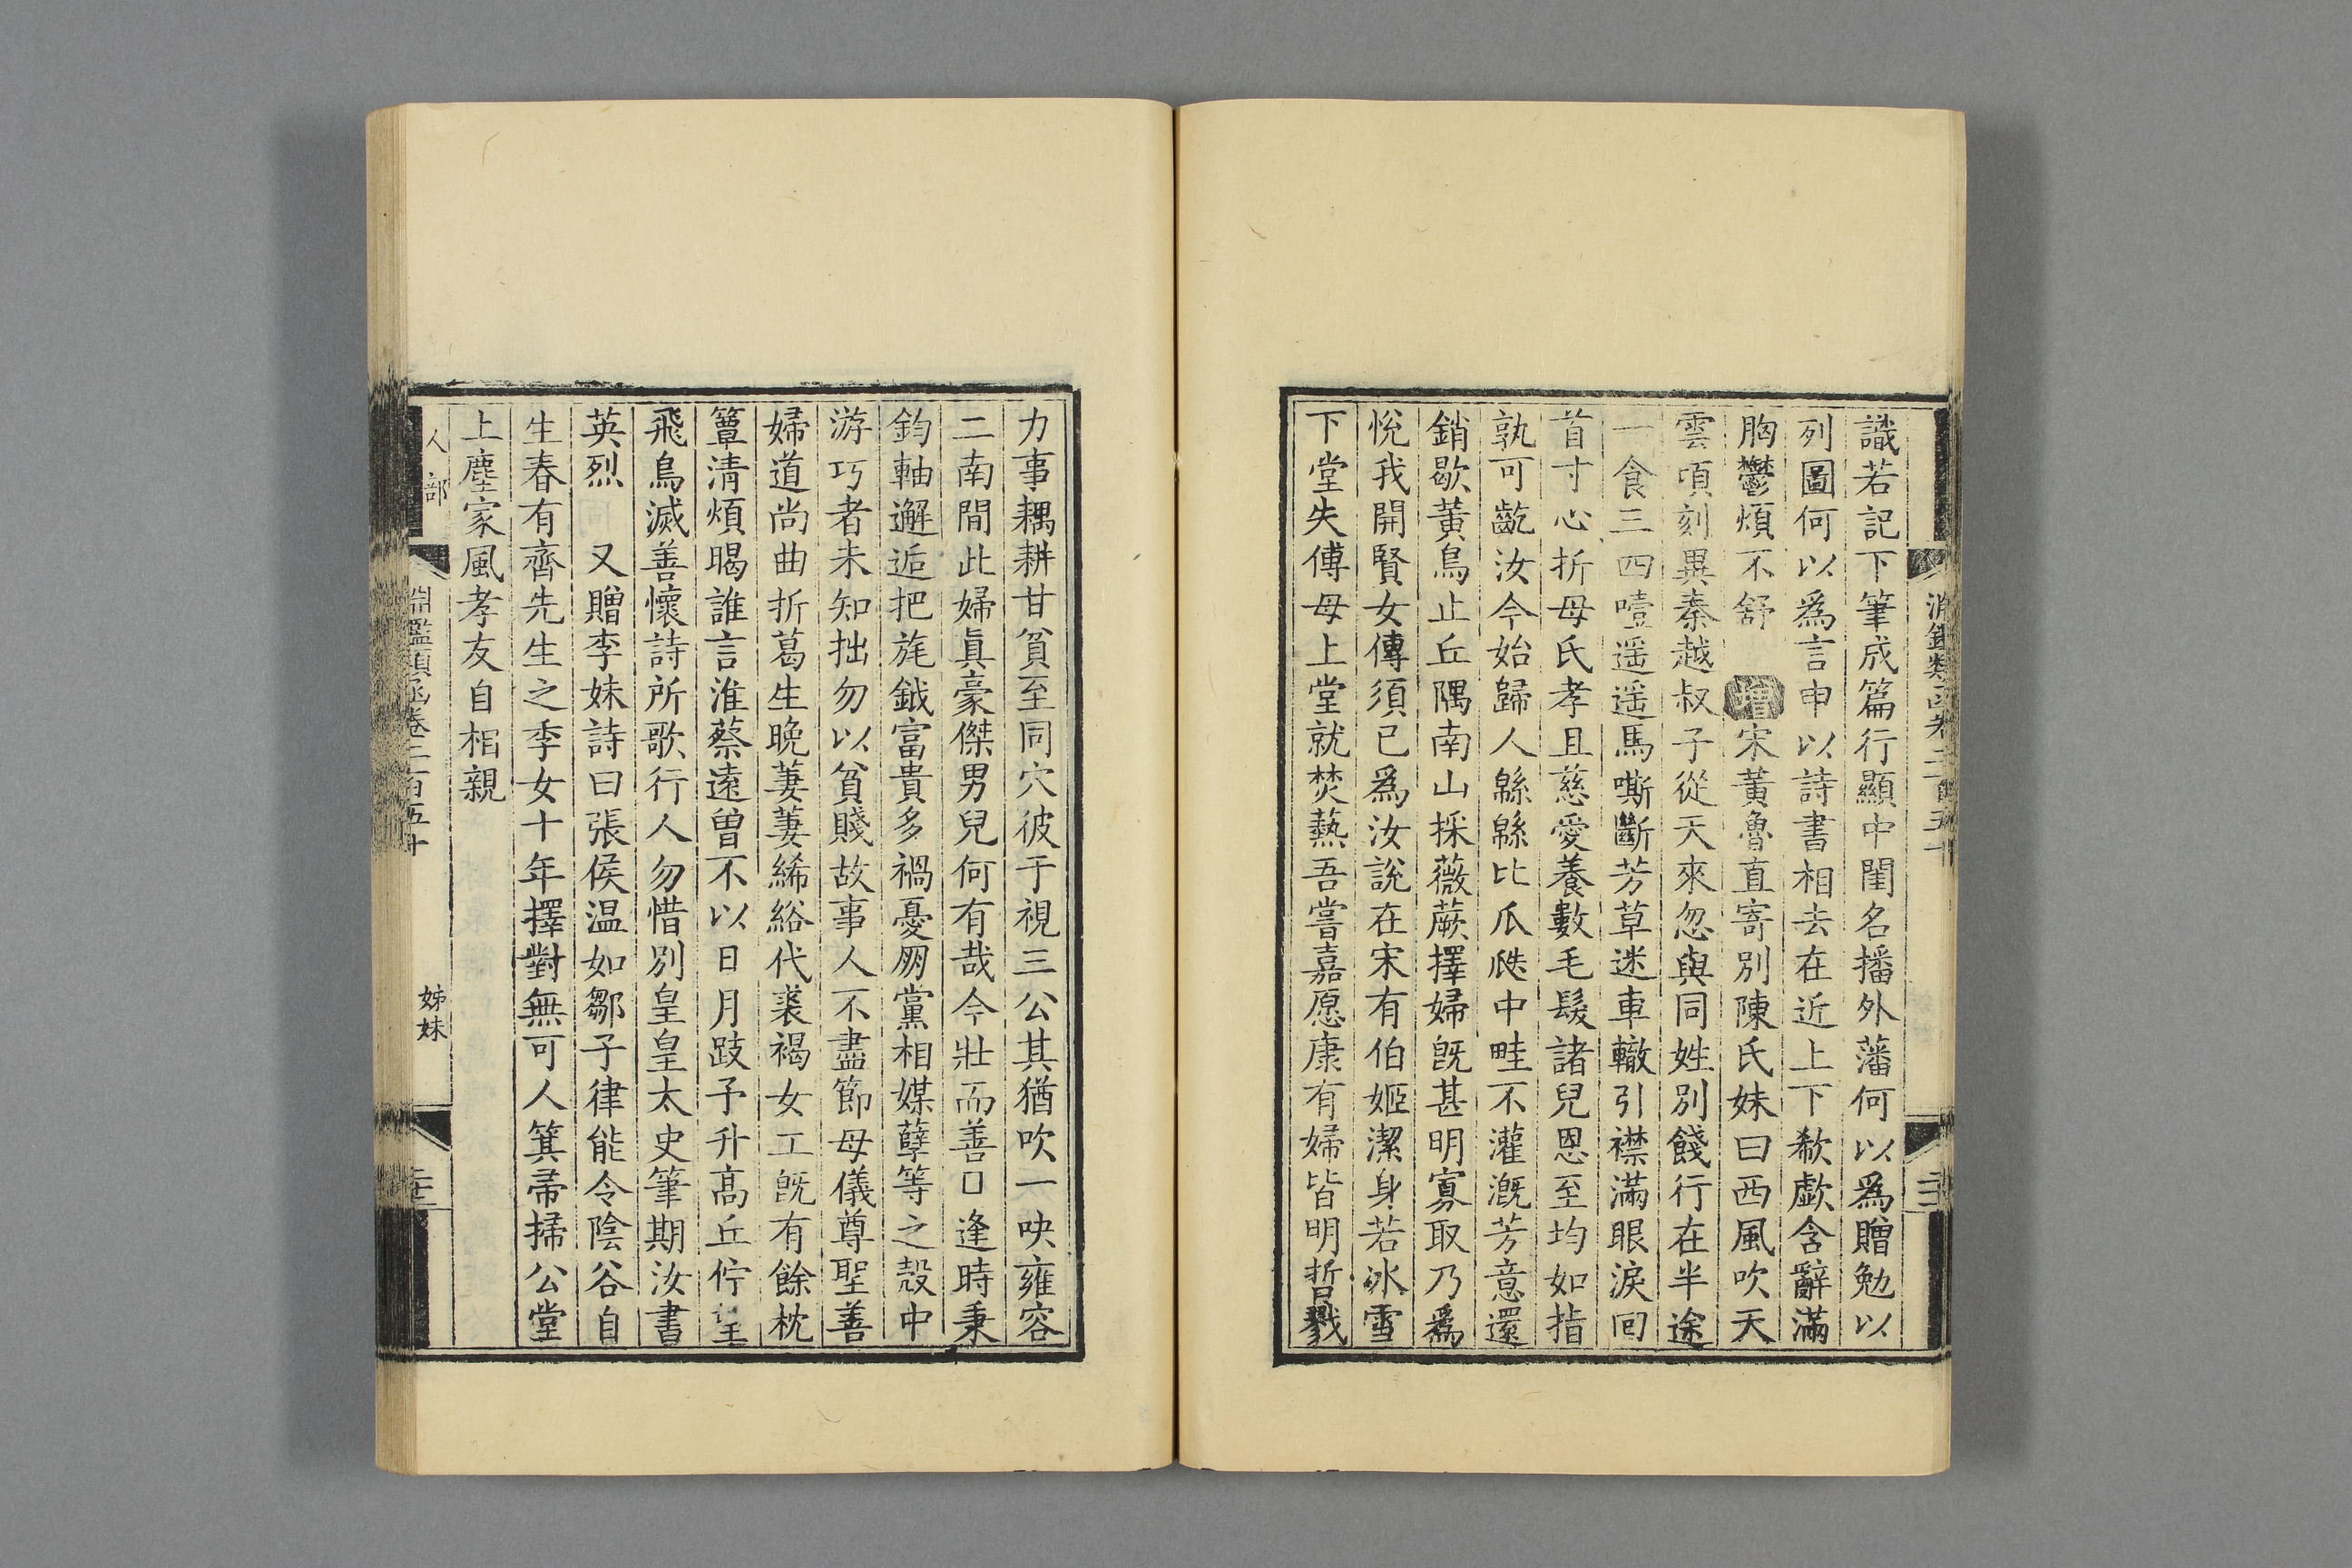 識若記下筆成篇行顯中閨名播外藩何以爲贈勉以
列圖何以爲言申以詩書相去在近上下欷歔含辭滿
胸鬱煩不舒 增宋黃魯直寄別陳氏妹曰西風吹天
雲頃刻異秦越叔子從天來忽與同姓別餞行在半途
一食三四噎遥遥馬嘶斷芳草迷車轍引襟滿眼淚回
首寸心折母氏孝且慈愛養數毛髮諸兒恩至均如指
孰可齕汝今始歸人緜緜比瓜瓞中畦不灌漑芳意還
銷歇黃鳥止丘隅南山採薇蕨擇婦旣甚明寡取乃爲
悅我開賢女傳須已爲汝說在宋有伯姬潔身若冰雪
下堂失傅母上堂就焚爇吾嘗嘉愿康有婦皆明哲戮
力事耦耕甘貧至同穴彼于視三公其猶吹一吷雍容
二南間此婦眞豪傑男兒何有哉今壯而善口逢時秉
鈞軸邂逅把旄鉞富貴多禍憂朋黨相媒孽等之殼中
游巧者未知拙勿以貧賤故事人不盡節母儀尊聖善
婦道尚曲折葛生晚萋萋絺綌代裘褐女工旣有餘枕
簟清煩暍誰言淮蔡遠曾不以日月跂予升高丘佇望
飛鳥滅善懷詩所歌行人勿惜別皇皇太史筆期汝書
英烈 又贈李妹詩曰張侯温如鄒子律能令陰谷自
生春有齊先生之季女十年擇對無可人箕帚掃公堂
上塵家風孝友自相親
人部
淵鑑類函卷二百五十
姊妹